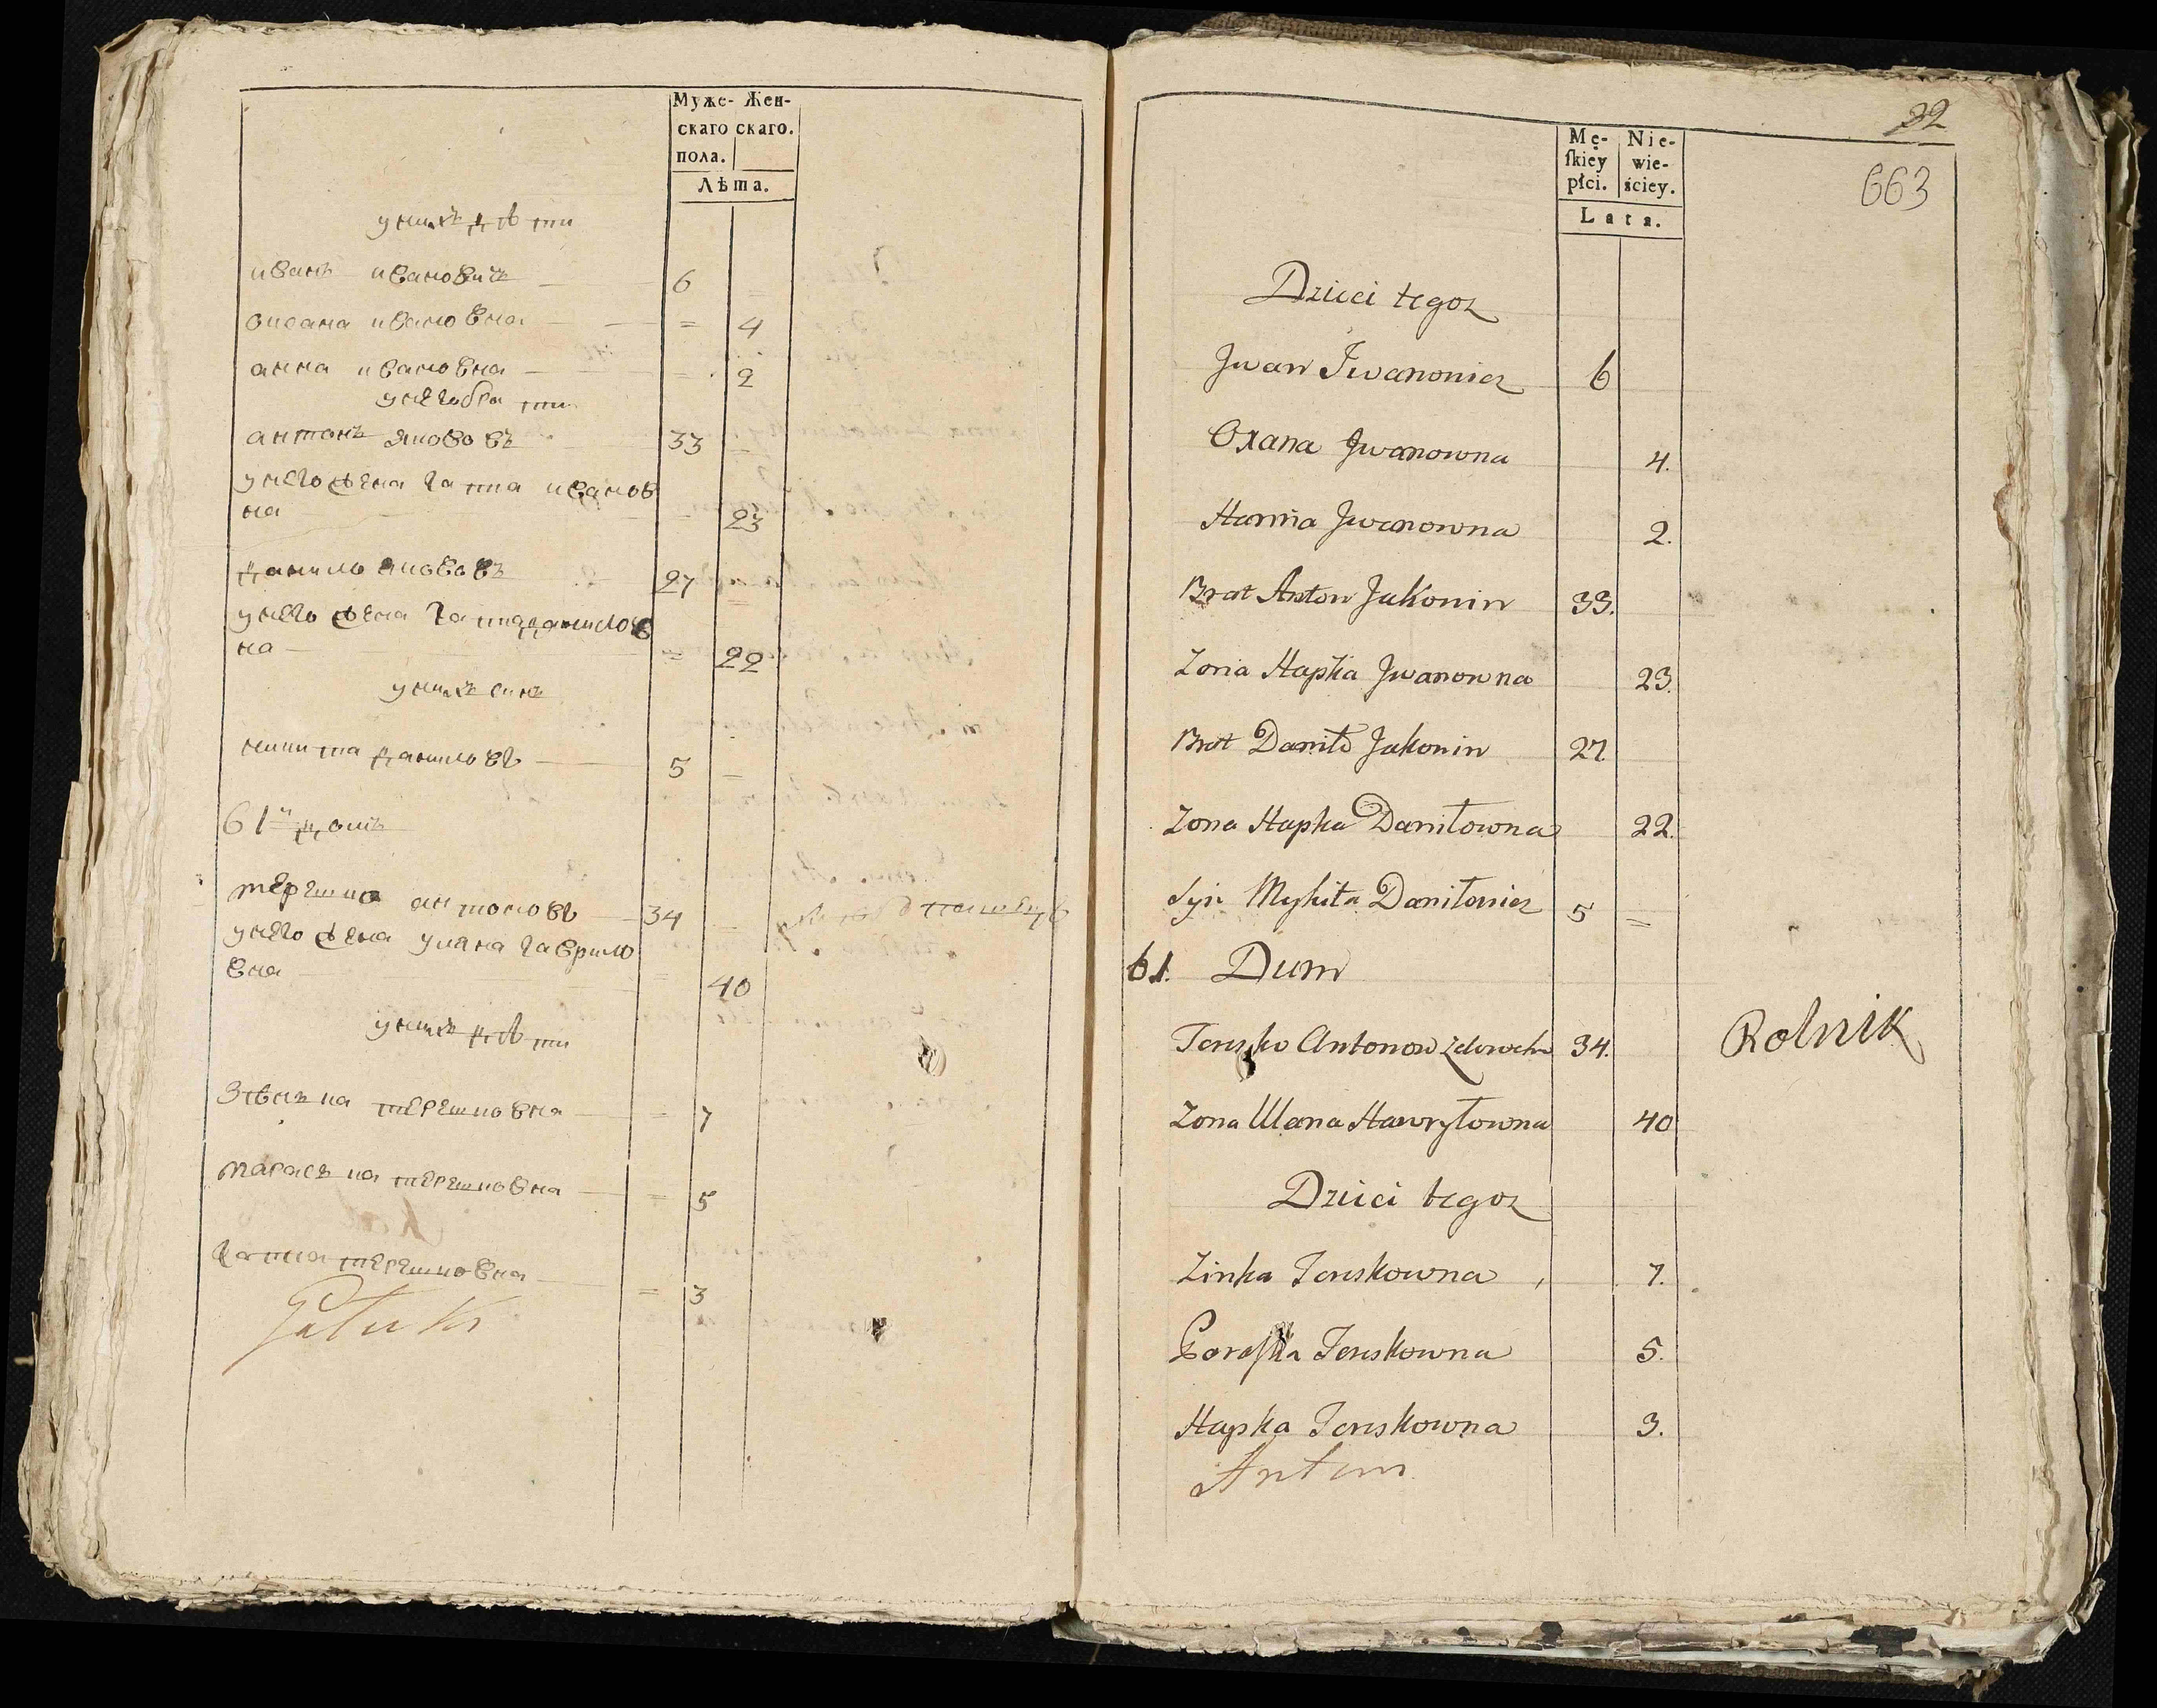 Муже- Жен-
скаго скаго.
пола.
Лѣта.
унихъ дѣти
иванъ ивановичъ 6
оксана ивановна = 4
анна ивановна 2
унегобрати
антонъ якововъ 33
унего жена гапка иванов
на 23
данило якововъ 27
унего жена гапка данилов
на = 22
унихъ синъ
микита даниловъ 5
61й домъ
терешко антоновъ 34
унего жена уляна гаврило
вна = 40
унихъ дѣти
зѣнька терешковна = 7
параска терешковна = 5
гапка терешковна = 3
32
663
Mę- Nie-
skiey wie-
płci. ściey.
Lata.
Dzieci tegoz
Jwan Jwanowicz 6
Oxana Jwanowna 4.
Hanna Jwanowna 2.
Brat Anton Jakowin 33.
Zona Hapka Jwanowna 23.
Brat Daniło Jakowin 27.
Zona Hapka Daniłowna 22.
Syn Mykita Daniłowicz 5 =
61. Dum
Teresko Antonow 34. Rolnik
Zona Ulana Hawryłowna 40
Dzieci tegoz
Zinka Tereskowna 7.
Paraska Tereskowna 5.
Hapka Tereskowna 3.